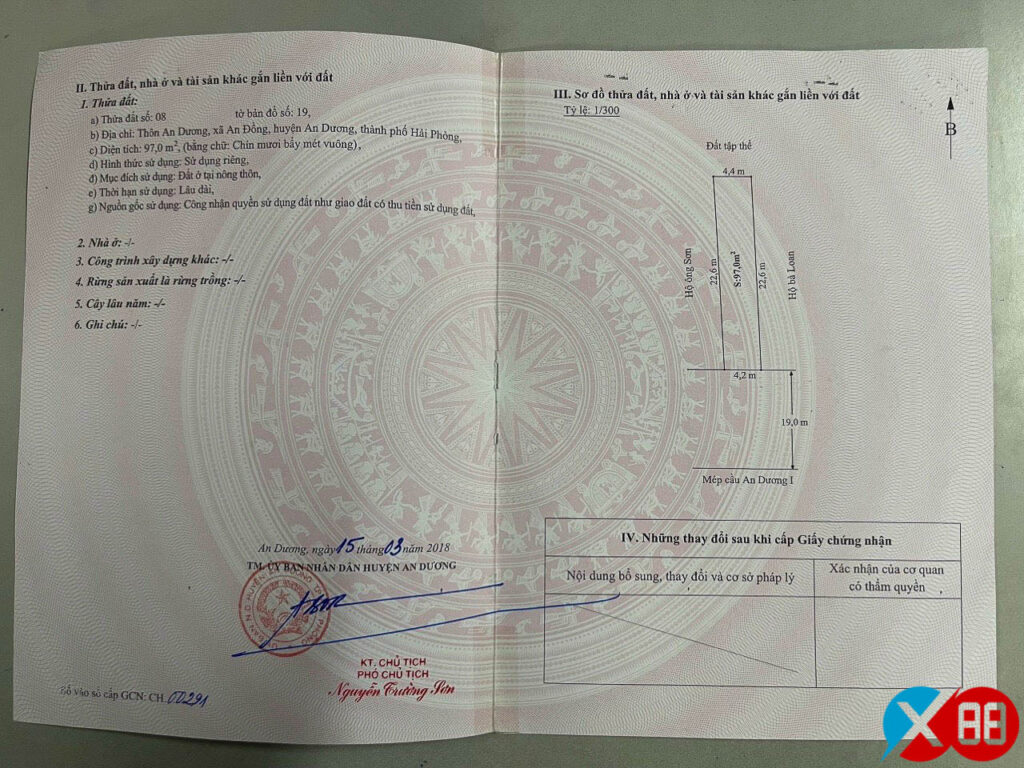 II. Thửa đất, nhà ở và tài sản khác gắn liền với đất
1. Thửa đất:
a) Thửa đất số: 08 tờ bản đồ số: 19,
b) Địa chỉ: Thôn An Dương, xã An Đồng, huyện An Dương, thành phố Hải Phòng,
c) Diện tích: 97,0 m², (bằng chữ: Chín mươi bảy mét vuông),
d) Hình thức sử dụng: Sử dụng riêng,
đ) Mục đích sử dụng: Đất ở tại nông thôn,
e) Thời hạn sử dụng: Lâu dài,
g) Nguồn gốc sử dụng: Công nhận quyền sử dụng đất như giao đất có thu tiền sử dụng đất,
2. Nhà ở: -/-
3. Công trình xây dựng khác: -/-
4. Rừng sản xuất là rừng trồng: -/-
5. Cây lâu năm: -/-
6. Ghi chú: -/-
An Dương, ngày 15 tháng 03 năm 2018
TM. ỦY BAN NHÂN DÂN HUYỆN AN DƯƠNG
KT. CHỦ TỊCH
PHÓ CHỦ TỊCH
Nguyễn Trường Sơn
Số vào sổ cấp GCN: CH 00291
III. Sơ đồ thửa đất, nhà ở và tài sản khác gắn liền với đất
Tỷ lệ: 1/300
B
Đất tập thể
4,4 m
Hộ ông Sơn
22,6 m
S:97,0m²
22,6 m
Hộ bà Loan
4,2 m
19,0 m
Mép cầu An Dương I
IV. Những thay đổi sau khi cấp Giấy chứng nhận
Nội dung bổ sung, thay đổi và cơ sở pháp lý
Xác nhận của cơ quan
có thẩm quyền
X88